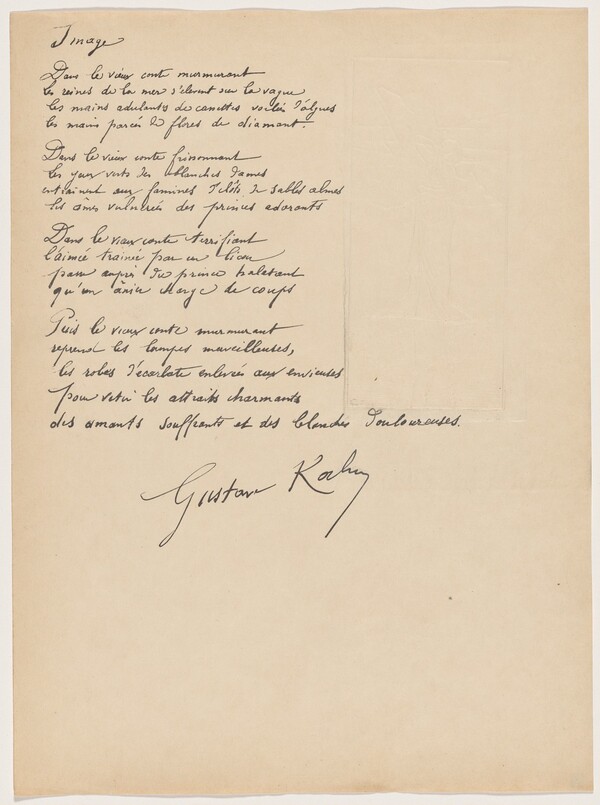 Image
Dans le vieux conte murmurant
les reines de la mer s'élèvent sur la vague
les mains adulantes de voilées d'algues
les mains de flores de diamant.
Dans le vieux conte frissonnant
les yeux verts des blanches dames
entrainent aux famines d'ilôts de sables almes
les âmes vulnérées des princes adorants
Dans le vieux conte terrifiant
l'aimée trainée par un licou
passe auprès du prince haletant
qu'un ânier charge de coups
Puis le vieux conte murmurant
reprend les lampes merveilleuses,
les robes d'écarlate enlevées aux envieuses
pour vêtir les attraits charmants
des amants souffrants et des blanches douloureuses.
Gustave Kahn